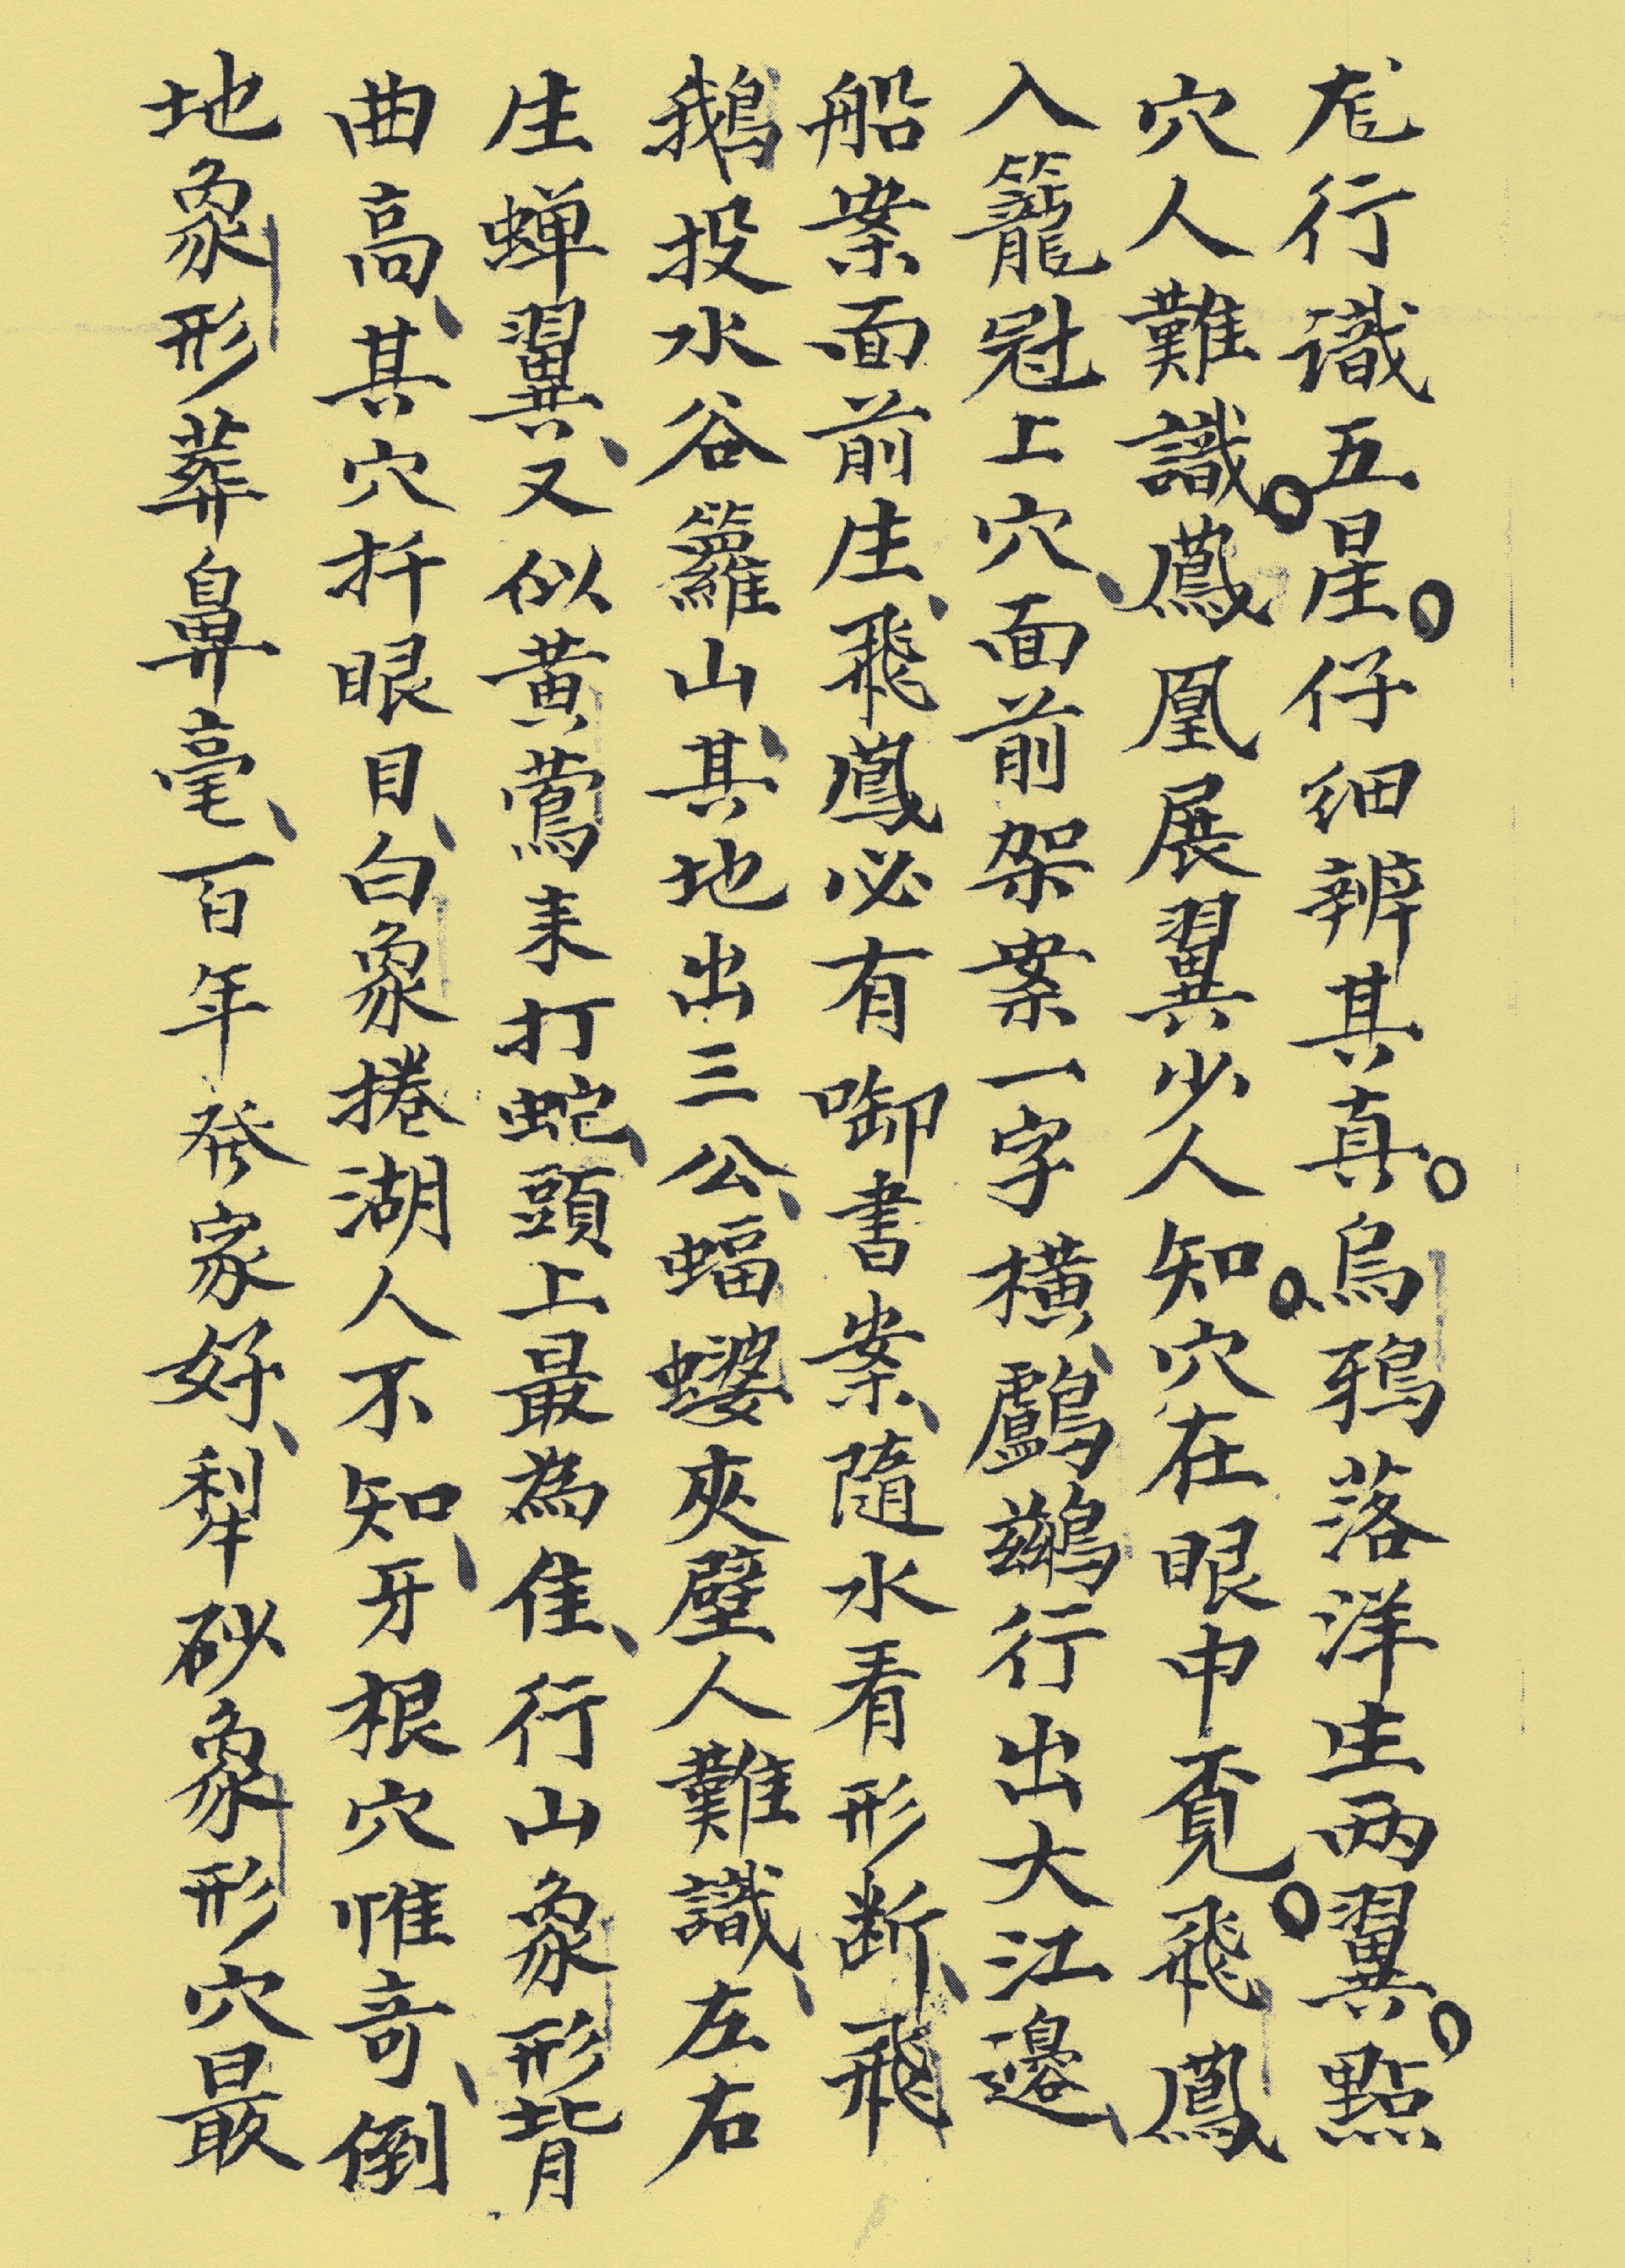 尨行識五星。仔细辨其真。烏鴉落洋生両翼。點
穴人難識。鳳凰展翼少人知。穴在眼中覔。飛鳳
入籠冠上穴、面前架案一字横、鸕鷀行出大江邊、
船案面前生、飛鳳必有啣書案、隨水看形断、飛
鵝投水谷籮山、其地出三公、蝠蟧夾壁人難識、左右
生蝉翼、又似黄鶯来打蛇、頭上最為佳、行山象形背
曲高、其穴扦眼目、白象捲湖人不知、牙根穴惟竒、倒
地象形葬鼻毫、百年発家好、犁砂象形穴最